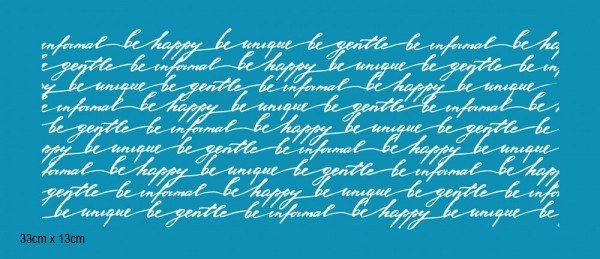 informal be happy be unique be gentle be informal be ha
e gentle be informal be happy be unique be gentle be in
y be unique be gentle be informal be happy be unique
e informal be happy be unique be gentle be informal be
be gentle be informal be happy be unique be gentle be
py be unique be gentle be informal be happy be unique
formal be happy be unique be gentle be informal be happy
gentle be informal be happy be unique be gentle be informal
be unique be gentle be informal be happy be unique be
33cm x 13cm